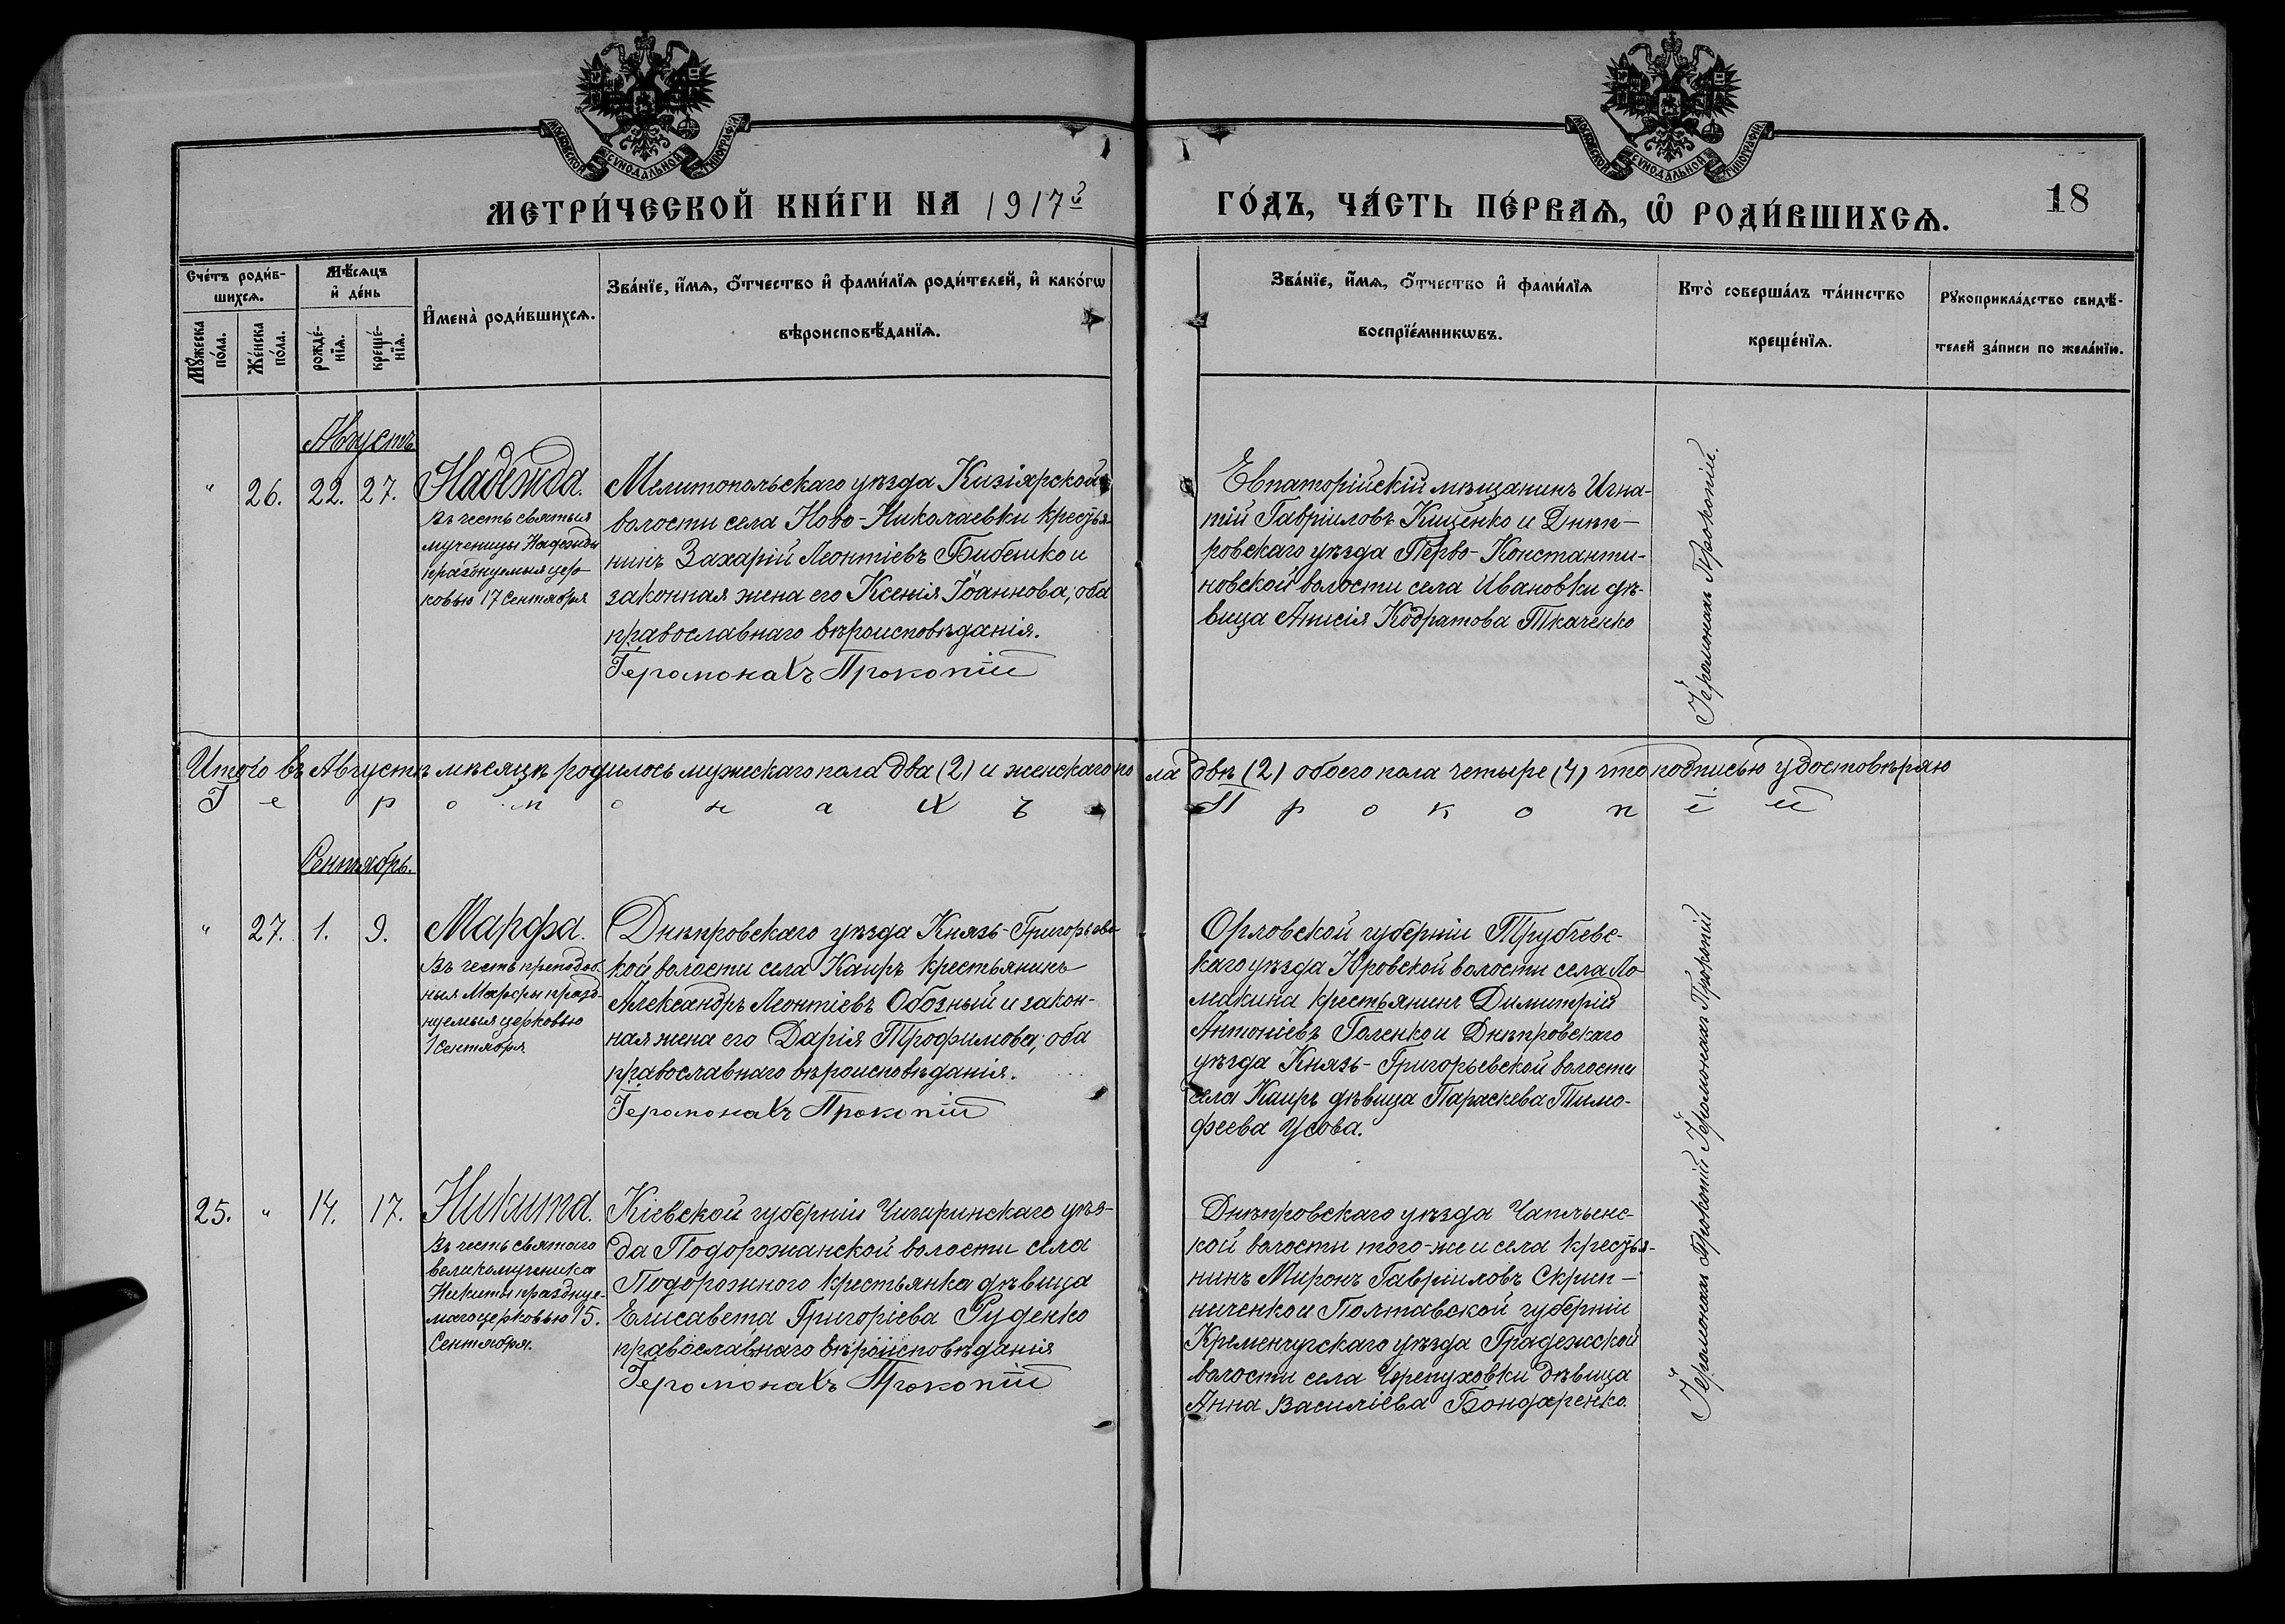 МОСКОВСКОЙ СУНОДАЛЬНОЙ ТИПОГРАФІИ
МОСКОВСКОЙ СУНОДАЛЬНОЙ ТИПОГРАФІИ
МЕТРИ́ЧЕСКОЙ КНИ́ГИ НА 1917й
ГО́ДЪ, ЧА́СТЬ ПЕ́РВАѦ, Ѽ РОДИ́ВШИХСѦ.
18
Сче́тъ роди́в-
шихсѧ.
Мꙋ́жеска
по́ла.
Же́нска
по́ла.
Мѣ́сѧцъ
и҆ де́нь
рожде́-
нїѧ.
креще́-
нїѧ.
И҆мена̀ роди́вшихсѧ.
Зва́нїе, и҆́мѧ, ѻ҆́тчество и҆ фами́лїѧ роди́телей, и҆ како́гѡ
вѣроисповѣ́данїѧ.
Зва́нїе, и҆́мѧ, ѻ҆́тчество и҆ фами́лїѧ
воспрїе́мникѡвъ.
Кто̀ соверша́лъ та́инство
креще́нїѧ.
Рꙋкоприкла́дство свидѣ́-
телей за́писи по жела́нїю.
Августъ
" 26. 22. 27.
Надежда.
Въ честь святыя
мученицы Надежды
празднуемыя цер-
ковью 17 Сентября
Мелитопольскаго уѣзда Кизіярской
волости села Ново-Николаевки крестья-
нинъ Захарій Леонтіевъ Бибешко и
законная жена его Ксенія Іоаннова; оба
православнаго вѣроисповѣданія.
Іеромонахъ Прокопій
Евпаторійскій мѣщанинъ Игна-
тій Гавріиловъ Кищенко и Днѣп-
ровскаго уѣзда Перво-Константи-
новской волости села Ивановки дѣ-
вица Анисія Кодратова Ткаченко
Іеромонахъ Прокопій.
Итого въ Августѣ мѣсяцѣ родилось мужскаго пола два (2) и женскаго пола двѣ (2) обоего пола четыре (4) что подписью удостовѣряю
Іеромонахъ Прокопій
Сентябрь.
" 27. 1. 9.
Марфа.
Въ честь преподоб-
ныя Марфы празд-
нуемыя церковью
1 Сентября
Днѣпровскаго уѣзда Князь-Григорьевс-
кой волости села Каиръ крестьянинъ
Александръ Леонтіевъ Обозный и закон-
ная жена его Дарія Трофимова; оба
православнаго вѣроисповѣданія.
Іеромонахъ Прокопій
Орловской губерніи Трубчевс-
каго уѣзда Юровской волости села Ло-
макина крестьянинъ Димитрій
АнтоніевъГоленко и Днѣпровскаго
уѣзда Князь-Григорьевской волости
села Каиръ дѣвица Параскева Тимо-
феева Усова.
Іеромонахъ Прокопій
25. " 14. 17.
Никита.
Въ честь святаго
великомученика
Никиты празднуе-
маго церковью 15.
Сентября.
Кіевской губерніи Чигиринскаго уѣз-
да Подорожанской волости села
Подорожного крестьянка дѣвица
Елисавета Григоріева Руденко
православнаго вѣроисповѣданія
Іеромонахъ Прокопій
Днѣпровскаго уѣзда Чаплынс-
кой волости того-же и села крестья-
нинъ Миронъ Гавріиловъ Скрып-
ниченко и Полтавской губерніи
Кременчугскаго уѣзда Градежской
волости села Черепуховки дѣвица
Анна Василіева Бондаренко.
Іеромонахъ Прокопій